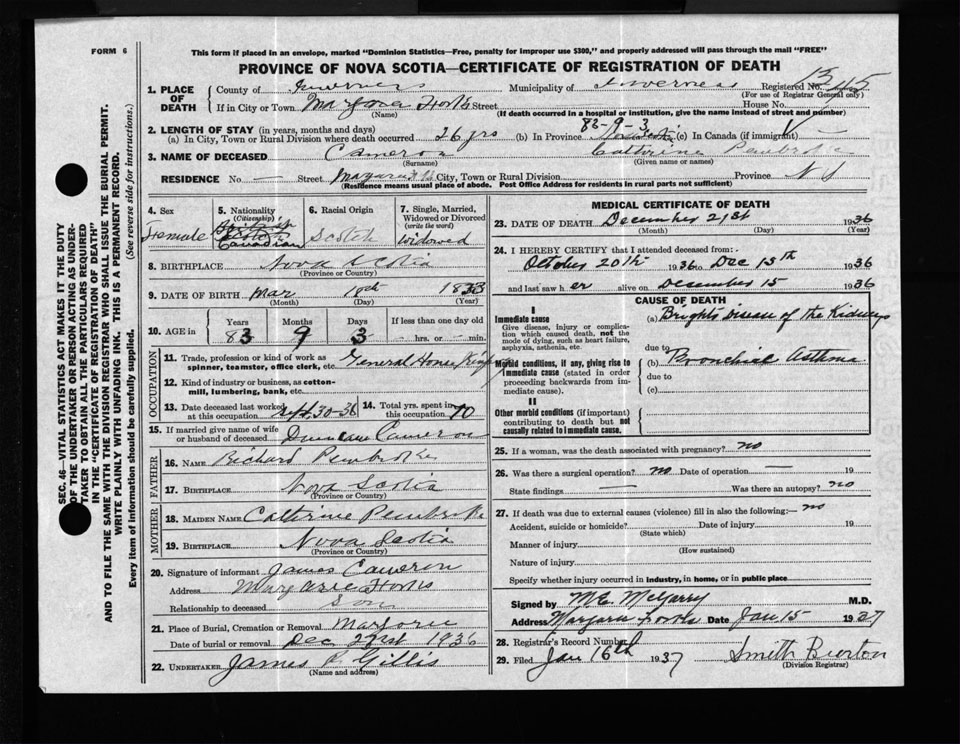 FORM 6
This form if placed in an envelope, marked "Dominion Statistics—Free, penalty for improper use $300," and properly addressed will pass through the mail "FREE"
PROVINCE OF NOVA SCOTIA—CERTIFICATE OF REGISTRATION OF DEATH
SEC. 46—VITAL STATISTICS ACT MAKES IT THE DUTY
OF THE UNDERTAKER OR PERSON ACTING AS UNDER-
TAKER TO OBTAIN ALL THE PARTICULARS REQUIRED
IN THE "CERTIFICATE OF REGISTRATION OF DEATH"
AND TO FILE THE SAME WITH THE DIVISION REGISTRAR WHO SHALL ISSUE THE BURIAL PERMIT.
WRITE PLAINLY WITH UNFADING INK. THIS IS A PERMANENT RECORD.
Every item of information should be carefully supplied. (See reverse side for instructions.)
1. PLACE OF DEATH
County of Inverness Municipality of Inverness Registered No.
(For use of Registrar General only)
If in City or Town Street House No.
(Name) (If death occurred in a hospital or institution, give the name instead of street and number)
82-9-3
2. LENGTH OF STAY (in years, months and days)
(a) In City, Town or Rural Division where death occurred 26 yrs (b) In Province (c) In Canada (if immigrant) —
3. NAME OF DECEASED Cameron Catherine Pembroke
(Surname) (Given name or names)
RESIDENCE No. — Street City, Town or Rural Division Province N S
(Residence means usual place of abode. Post Office Address for residents in rural parts not sufficient)
4. Sex
Female
5. Nationality
(Citizenship)
Canadian
6. Racial Origin
Scotch
7. Single, Married,
Widowed or Divorced
(write the word)
Widowed
8. BIRTHPLACE Nova Scotia
(Province or Country)
9. DATE OF BIRTH Mar 18th 1853
(Month) (Day) (Year)
10. AGE in
Years Months Days If less than one day old
83 9 3 — hrs. or — min.
OCCUPATION
11. Trade, profession or kind of work as
spinner, teamster, office clerk, etc. General House
12. Kind of industry or business, as cotton-
mill, lumbering, bank, etc.
13. Date deceased last worked
at this occupation Sept 30-36
14. Total yrs. spent in
this occupation 70
15. If married give name of wife
or husband of deceased Duncan Cameron
FATHER
16. NAME Richard Pembroke
17. BIRTHPLACE Nova Scotia
(Province or Country)
MOTHER
18. MAIDEN NAME Catherine Pembroke
19. BIRTHPLACE Nova Scotia
(Province or Country)
20. Signature of informant James Cameron
Address Forks
Relationship to deceased Son
21. Place of Burial, Cremation or Removal Marjorie
Date of burial or removal Dec 1936
22. UNDERTAKER James P. Gillis
(Name and address)
MEDICAL CERTIFICATE OF DEATH
23. DATE OF DEATH December 21st 1936
(Month) (Day) (Year)
24. I HEREBY CERTIFY that I attended deceased from:-
October 20th 1936 to Dec 15th 1936
and last saw h er alive on December 15 1936
CAUSE OF DEATH
I
Immediate cause
Give disease, injury or complica-
tion which caused death, not the
mode of dying, such as heart failure,
asphyxia, asthenia, etc.
(a) Brights Disease of the Kidneys
due to
Morbid conditions, if any, giving rise to
immediate cause (stated in order
proceeding backwards from im-
mediate cause).
(b) Bronchial Asthma
due to
(c)
II
Other morbid conditions (if important)
contributing to death but not
causally related to immediate cause.
25. If a woman, was the death associated with pregnancy? no
26. Was there a surgical operation? no Date of operation — 19
State findings — Was there an autopsy? no
27. If death was due to external causes (violence) fill in also the following:— no
Accident, suicide or homicide? Date of injury 19
(State which)
Manner of injury
(How sustained)
Nature of injury
Specify whether injury occurred in industry, in home, or in public place
Signed by M.E. McGarry M.D.
Address Forks Date Jan 15 1937
28. Registrar's Record Number
29. Filed Jan 16th 1937 Smith Burton
(Division Registrar)